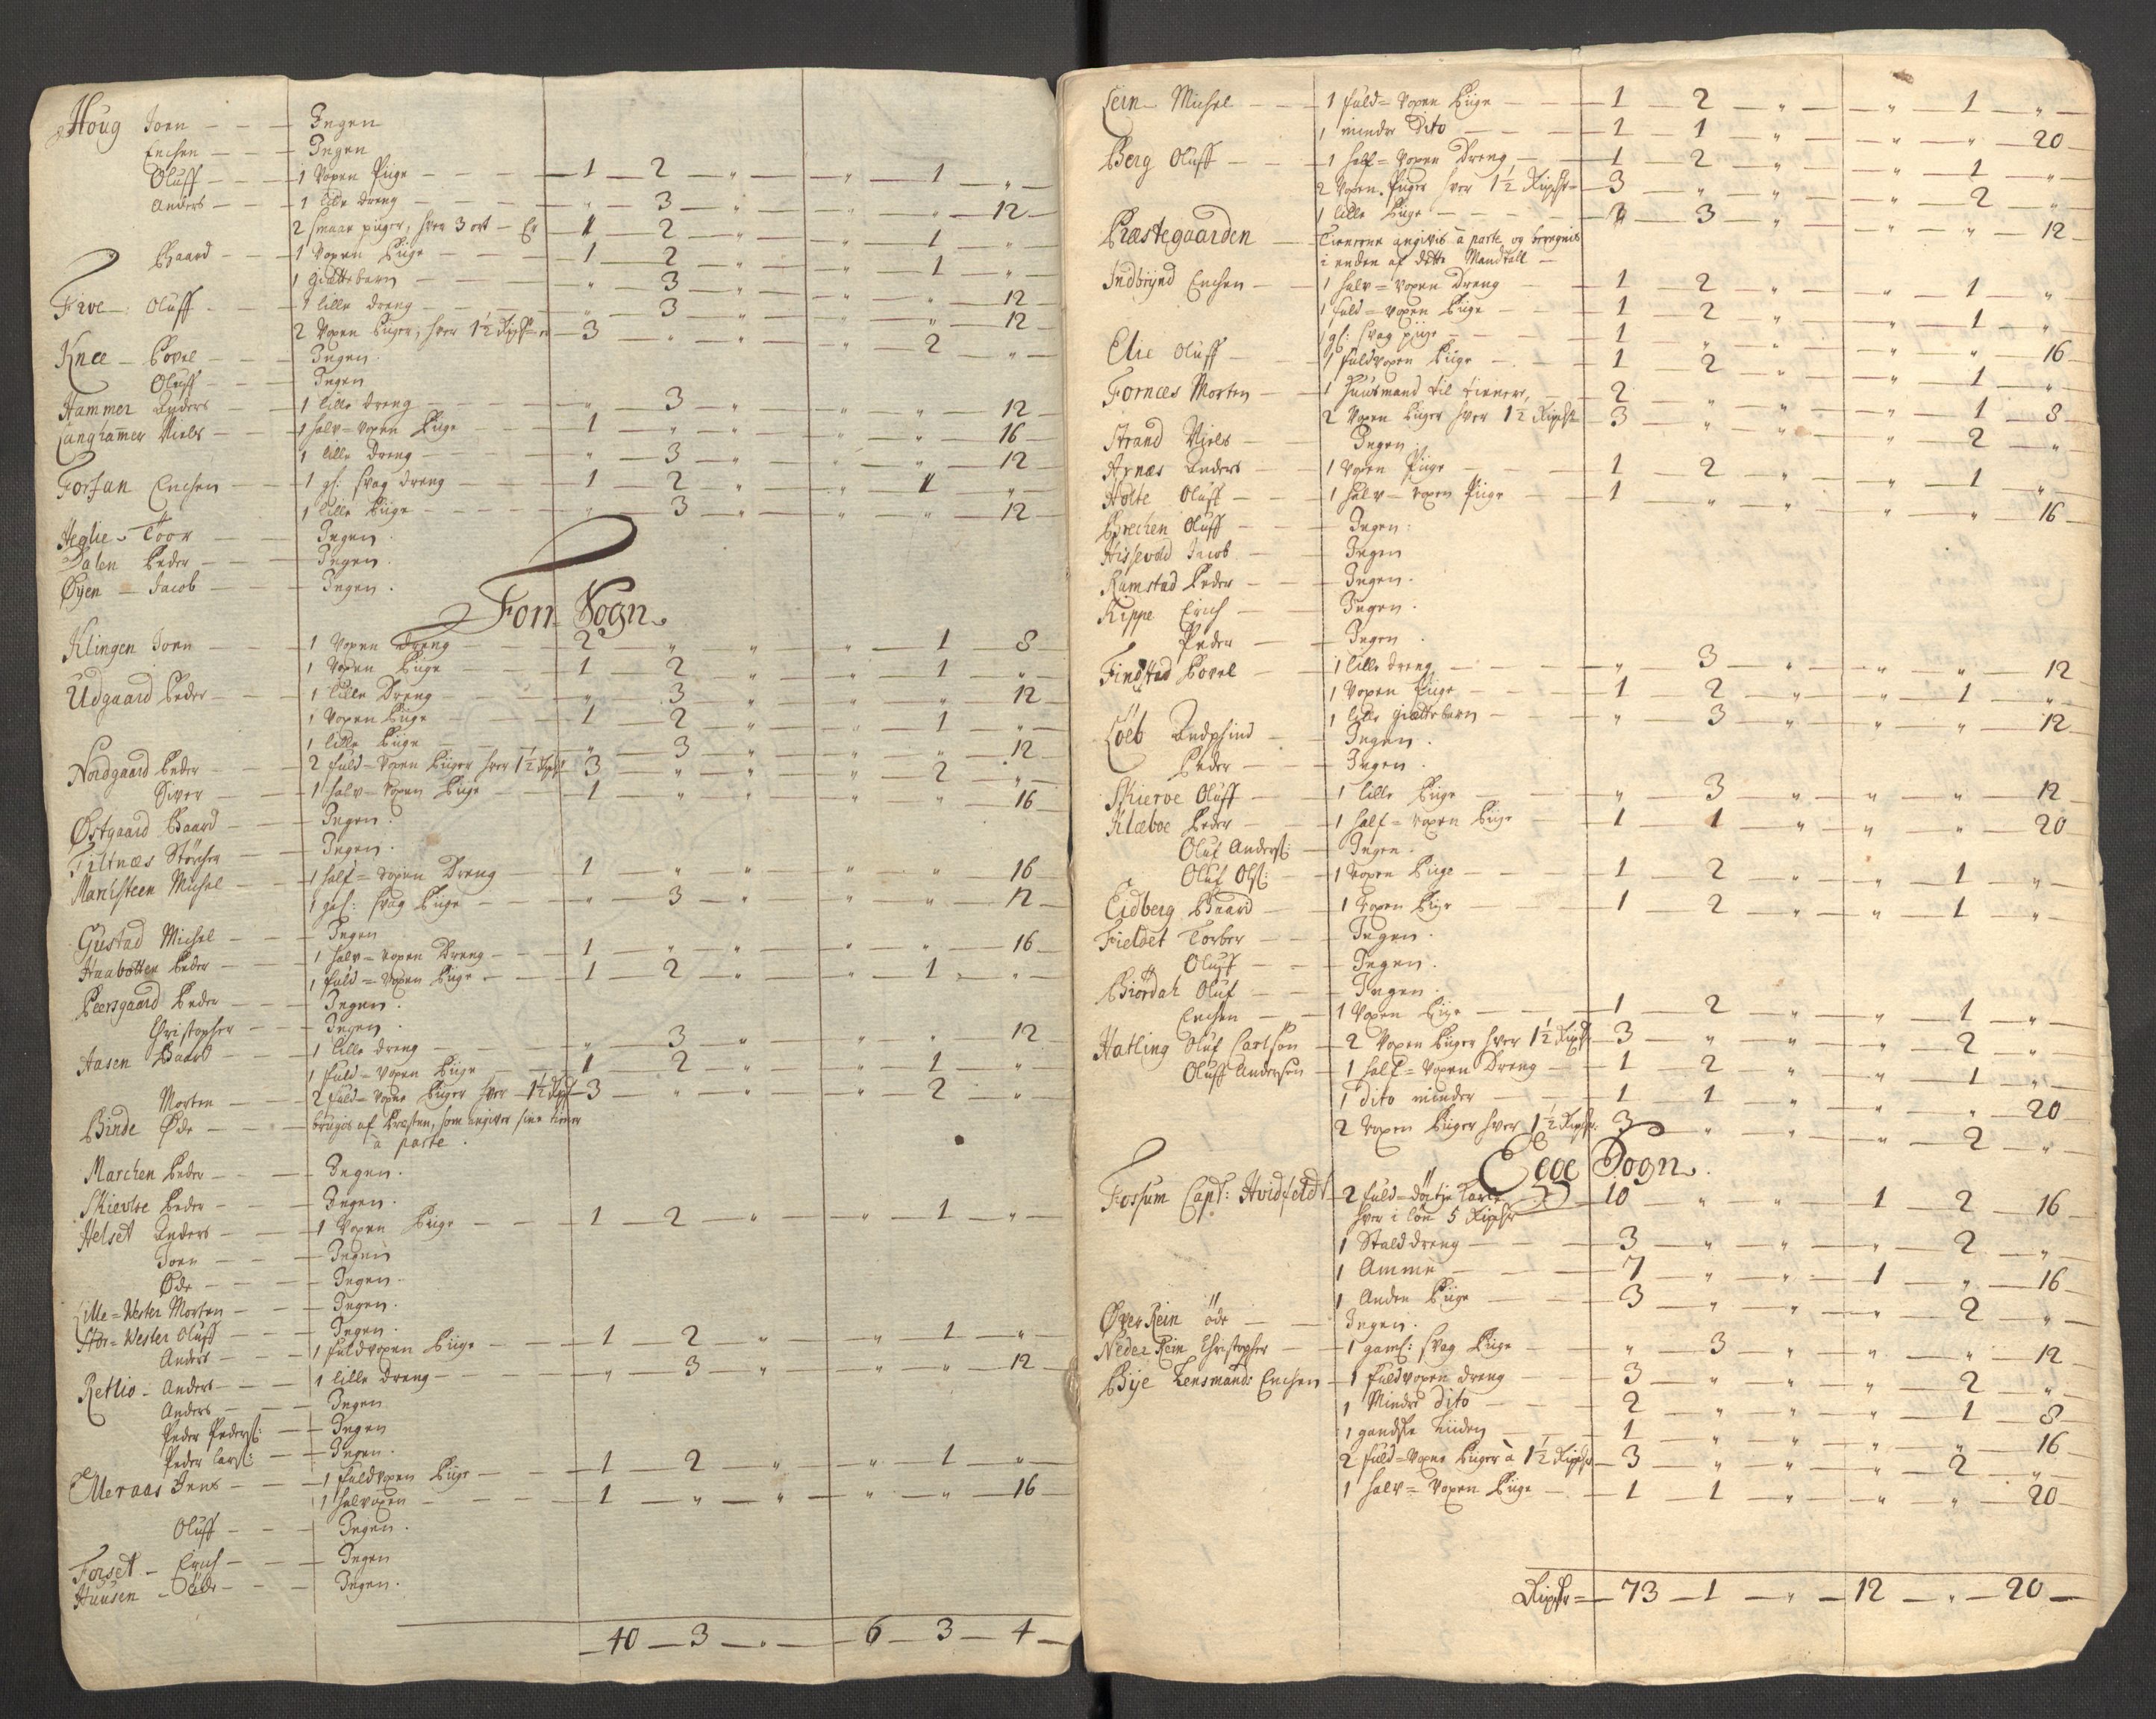 Houg Joen — — Ingen
Erichen — — Ingen
Oluff — — 1 Voxen Piige — — 1 — 2 — „ — „ — 1 — „
Anders — — 1 lide dreng — — „ — 3 — „ — „ — „ — 12
2 smaae piiger, hver 3 ort — Er 1 — 2 — „ — „ — 1 — „
Baard — — 1 Voxen Piige — — 1 — 2 — „ — „ — 1 — „
1 giettebarn — — „ — 3 — „ — „ — „ — 12
Five Oluff — — 1 lille dreng — — „ — 3 — „ — „ — „ — 12
2 Voxen Piiger, hver 1½ Rixdr er 3 — „ — „ — „ — 2 — „
Knee — Povel — — Ingen
Oluff — — Ingen
Hammer Anders — — 1 lille dreng — — „ — 3 — „ — „ — „ — 12
Langhammer Niels — — 1 halv=voxen Piige — — 1 — „ — „ — „ — „ — 16
1 lille dreng — — „ — 3 — „ — „ — „ — 12
Forfun Erichen — — 1 gl: svag dreng — — 1 — 2 — „ — „ — 1 — „
1 lille Piige — — „ — 3 — „ — „ — „ — 12
Heglie — Toor — — Ingen
Dalen Peder — — Ingen
Øyen — Jacob — — Ingen
Forr Sogn
Klingen Joen — — 1 Voxen dreng — — 2 — „ — „ — „ — 1 — 8
1 Voxen Piige — — 1 — 2 — „ — „ — 1 — „
Udgaard Peder — — 1 lille Dreng — — „ — 3 — „ — „ — „ — 12
1 Voxen Piige — — 1 — 2 — „ — „ — 1 — „
1 lille Piige — — „ — 3 — „ — „ — „ — 12
Nordgaard Peder — — 2 fuld=voxen Piiger hver 1½ Rixdr 3 — „ — „ — „ — 2 — „
Siver — — 1 halv=voxen Piige — — 1 — „ — „ — „ — „ — 16
Østgaard Baard — — Ingen
Tiltnæs Størcher — — Ingen
Marchsteen Michel — — 1 half=voxen Dreng — — 1 — „ — „ — „ — „ — 16
1 gal: svag Piige — — „ — 3 — „ — „ — „ — 12
Gustad Michel — — Ingen
Haabotten Peder — — 1 halv=voxen Dreng — — 1 — „ — „ — „ — „ — 16
1 fuld=voxen Piige — — 1 — 2 — „ — „ — 1 — „
Peersgaard Peder — — Ingen
Christopher — — Ingen
Aasen Baard — — 1 lille dreng — — „ — 3 — „ — „ — „ — 12
1 fuld=voxen Piige — — 1 — 2 — „ — „ — 1 — „
Morten — — 2 fuld=voxne Piiger hver 1½ Rixdr 3 — „ — „ — „ — 2 — „
Binde Øde — — brugis af Præsten, som angiver sine tiener
à parte.
Marchen Peder — — Ingen.
Skievlse Peder — — Ingen.
Helset Anders — — 1 Voxen Piige — — 1 — 2 — „ — „ — 1 — „
Joen — — Ingen
Øde — — Ingen
Lille=Wester Morten — — Ingen.
Stor=Wester Oluff — — Ingen.
Anders — — 1 fuldvoxen Piige — — 1 — 2 — „ — „ — 1 — „
Retlio — Anders — — 1 lille dreng — — „ — 3 — „ — „ — „ — 12
Anders — — Ingen
Peder Peders: — Ingen
Peder Lars: — Ingen.
Elleraas Jens — — 1 fuldvoxen Piige — — 1 — 2 — „ — „ — 1 — „
1 halvoxen — — 1 — „ — „ — „ — „ — 16
Oluff — — Ingen.
Forset — Erich — — Ingen
Huusen — Øde — — Ingen.
40 — 3 — „ — 6 — 3 — 4
Lein — Michel — — 1 fuld=voxen Piige — — 1 — 2 — „ — „ — 1 — „
1 mindre Dito — — 1 — 1 — „ — „ — „ — 20
Berg Oluff — — 1 half=voxen Dreng — — 1 — 2 — „ — „ — 1 — „
2 Voxen Piiger hver 1½ Rixdr 3 — „ — „ — „ — 2 — „
1 lille Piige — — „ — 3 — „ — „ — „ — 12
Præstegaarden — Tienerne angivis à parte og beregnis
i enden af dette Mandtall —
Indbrynd Erichen — — 1 halv=voxen Dreng — — 1 — 2 — „ — „ — 1 — „
1 fuld=voxen Piige — — 1 — 2 — „ — „ — 1 — „
Elie Oluff — — 1 gl: svag piige — — 1 — „ — „ — „ — „ — 16
1 fuldvoxen Piige — — 1 — 2 — „ — „ — 1 — „
Fornæs Morten — — 1 Huusmand til tienner, — 2 — „ — „ — „ — 1 — 8
2 Voxen Piiger hver 1½ Rixdr 3 — „ — „ — „ — 2 — „
Strand Niels — — Ingen
Arnæs Anders — — 1 Voxen Piige — — 1 — 2 — „ — „ — 1 — „
Holte Oluff — — 1 halv=voxen Piige — — 1 — „ — „ — „ — „ — 16
Brechen Oluff — — Ingen:
Hissevold Jacob — — Ingen
Ramstad Peder — — Ingen.
Kippe Erich — — Ingen.
Peder — — Ingen
Findstad Povel — — 1 lille dreng — — „ — 3 — „ — „ — „ — 12
1 Voxen Piige — — 1 — 2 — „ — „ — 1 — „
1 lille giættebarn — — „ — 3 — „ — „ — „ — 12
Löeb Andphind — — Ingen.
Peder — — Ingen.
Skierve Oluff — — 1 lille Piige — — „ — 3 — „ — „ — „ — 12
Klæboe Peder — — 1 half=voxen Piige — — 1 — 1 — „ — „ — „ — 20
Oluf Anders: — Ingen.
Oluf Ols: — 1 Voxen Piige — — 1 — 2 — „ — „ — 1 — „
Eidberg Baard — — 1 Voxen Piige — — 1 — 2 — „ — „ — 1 — „
Fieldet Torber — — Ingen.
Oluff — — Ingen.
Biördah Oluf — — Ingen.
Erichen — — 1 Voxen Piige — — 1 — 2 — „ — „ — 1 — „
Hatling Oluf Carlsön — 2 Voxen Piiger hver 1½ Rixdr 3 — „ — „ — „ — 2 — „
Oluff Andersen — 1 half=voxen Dreng — — 1 — 2 — „ — „ — 1 — „
1 dito minder — — 1 — 1 — „ — „ — „ — 20
2 Voxen Piiger hver 1½ Rixdr: 3 — „ — „ — „ — 2 — „
Egge Sogn.
Fossum Capt: Hvidfeldt — 2 fuld=dögtje Karle 10 — „ — „ — 1 — 2 — 16
hver i lön 5 Rixdr
1 Stalddreng — — 3 — „ — „ — „ — 2 — „
1 Amme — — 7 — „ — „ — 1 — „ — 16
1 Anden Piige — — 3 — „ — „ — „ — 2 — „
Øver Rein öde — — Ingen.
Neder Rein Christopher — — 1 gaml: svag Piige — — „ — 3 — „ — „ — „ — 12
Bije Lensmand: Erichen — 1 fuldvoxen dreng — — 3 — „ — „ — „ — 2 — „
1 Mindre dito — — 2 — „ — „ — „ — 1 — 8
1 gandske Liiden — — 1 — „ — „ — „ — „ — 16
2 fuld=voxne Piiger à 1½ Rixdr 3 — „ — „ — „ — 2 — „
1 halv=voxen Piige — — 1 — 1 — „ — „ — „ — 20
Rixdr = 73 — 1 — „ — 12 — „ — 20